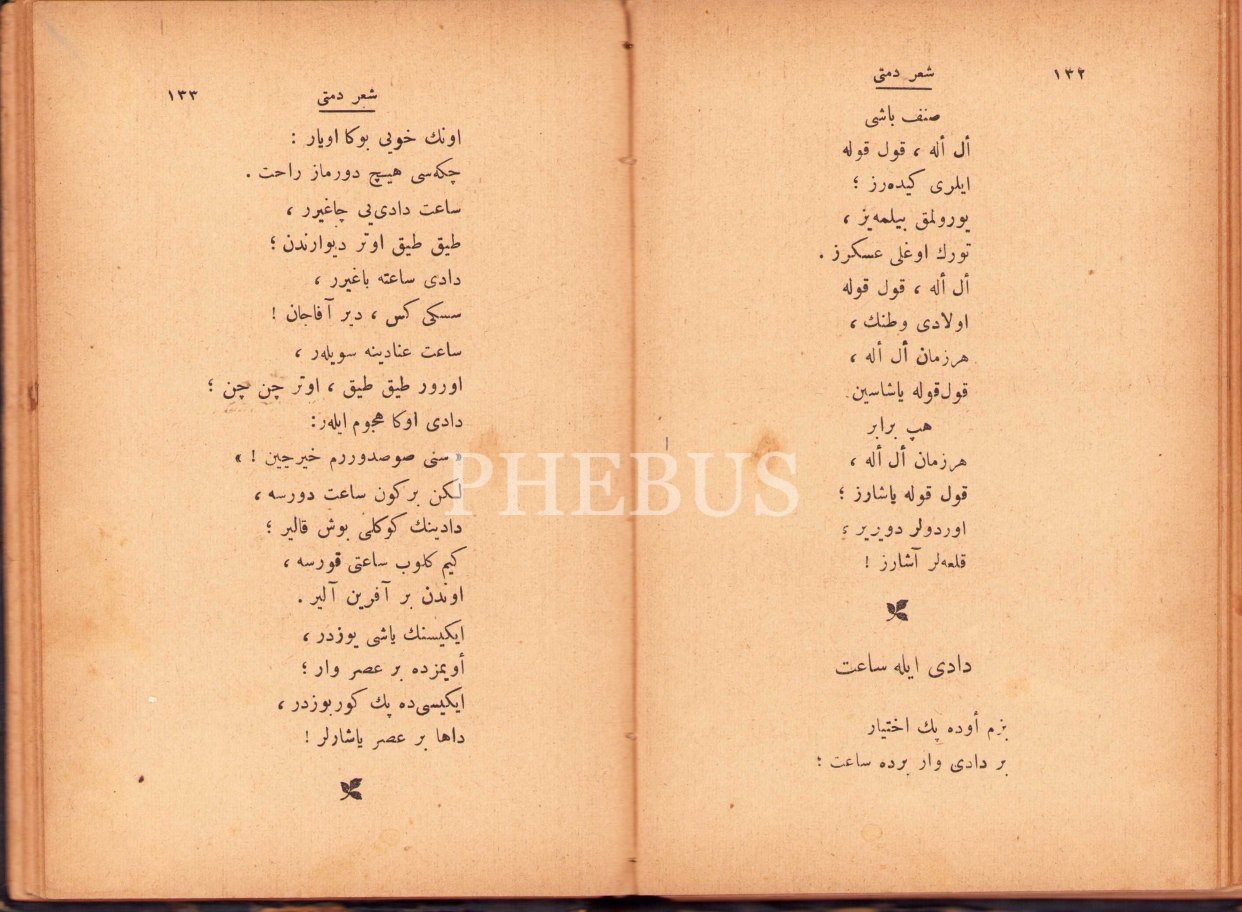 ١٣٢
شعر دمتی
صنف باشی
أل أله ، قول قوله
ایلری کیده‌رز ؛
یورولمق بیلمه‌یز ،
تورك اوغلی عسکرز .
أل أله ، قول قوله
اولادی وطنك ،
هرزمان أل أله ،
قول‌قوله یاشاسین
هپ برابر
هرزمان أل أله ،
قول قوله یاشارز ؛
اوردولر دویریر ؛
قلعه‌لر آشارز !
دادی ایله ساعت
بزم أوده پك اختیار
بر دادی وار برده ساعت ؛
١٣٣
شعر دمتی
اونك خویی بوکا اویار :
چکه‌سی هیچ دورماز راحت .
ساعت دادی‌یی چاغیرر ،
طیق طیق اوتر دیوارندن ؛
دادی ساعته باغیرر ،
سسکی کس ، دیر آفاجان !
ساعت عنادینه سویله‌ر ،
اورور طیق طیق ، اوتر چن چن ؛
دادی اوکا هجوم ایله‌ر:
« سنی صوصدوررم خیرچین ! »
لکن بر کون ساعت دورسه ،
دادینك کوکلی بوش قالیر ؛
کیم کلوب ساعتی قورسه ،
اوندن بر آفرین آلیر .
ایکیسنك یاشی یوزدر ،
أویمزده بر عصر وار ؛
ایکیسی‌ده پك کوربوزدر ،
داها بر عصر یاشارلر !
PHEBUS